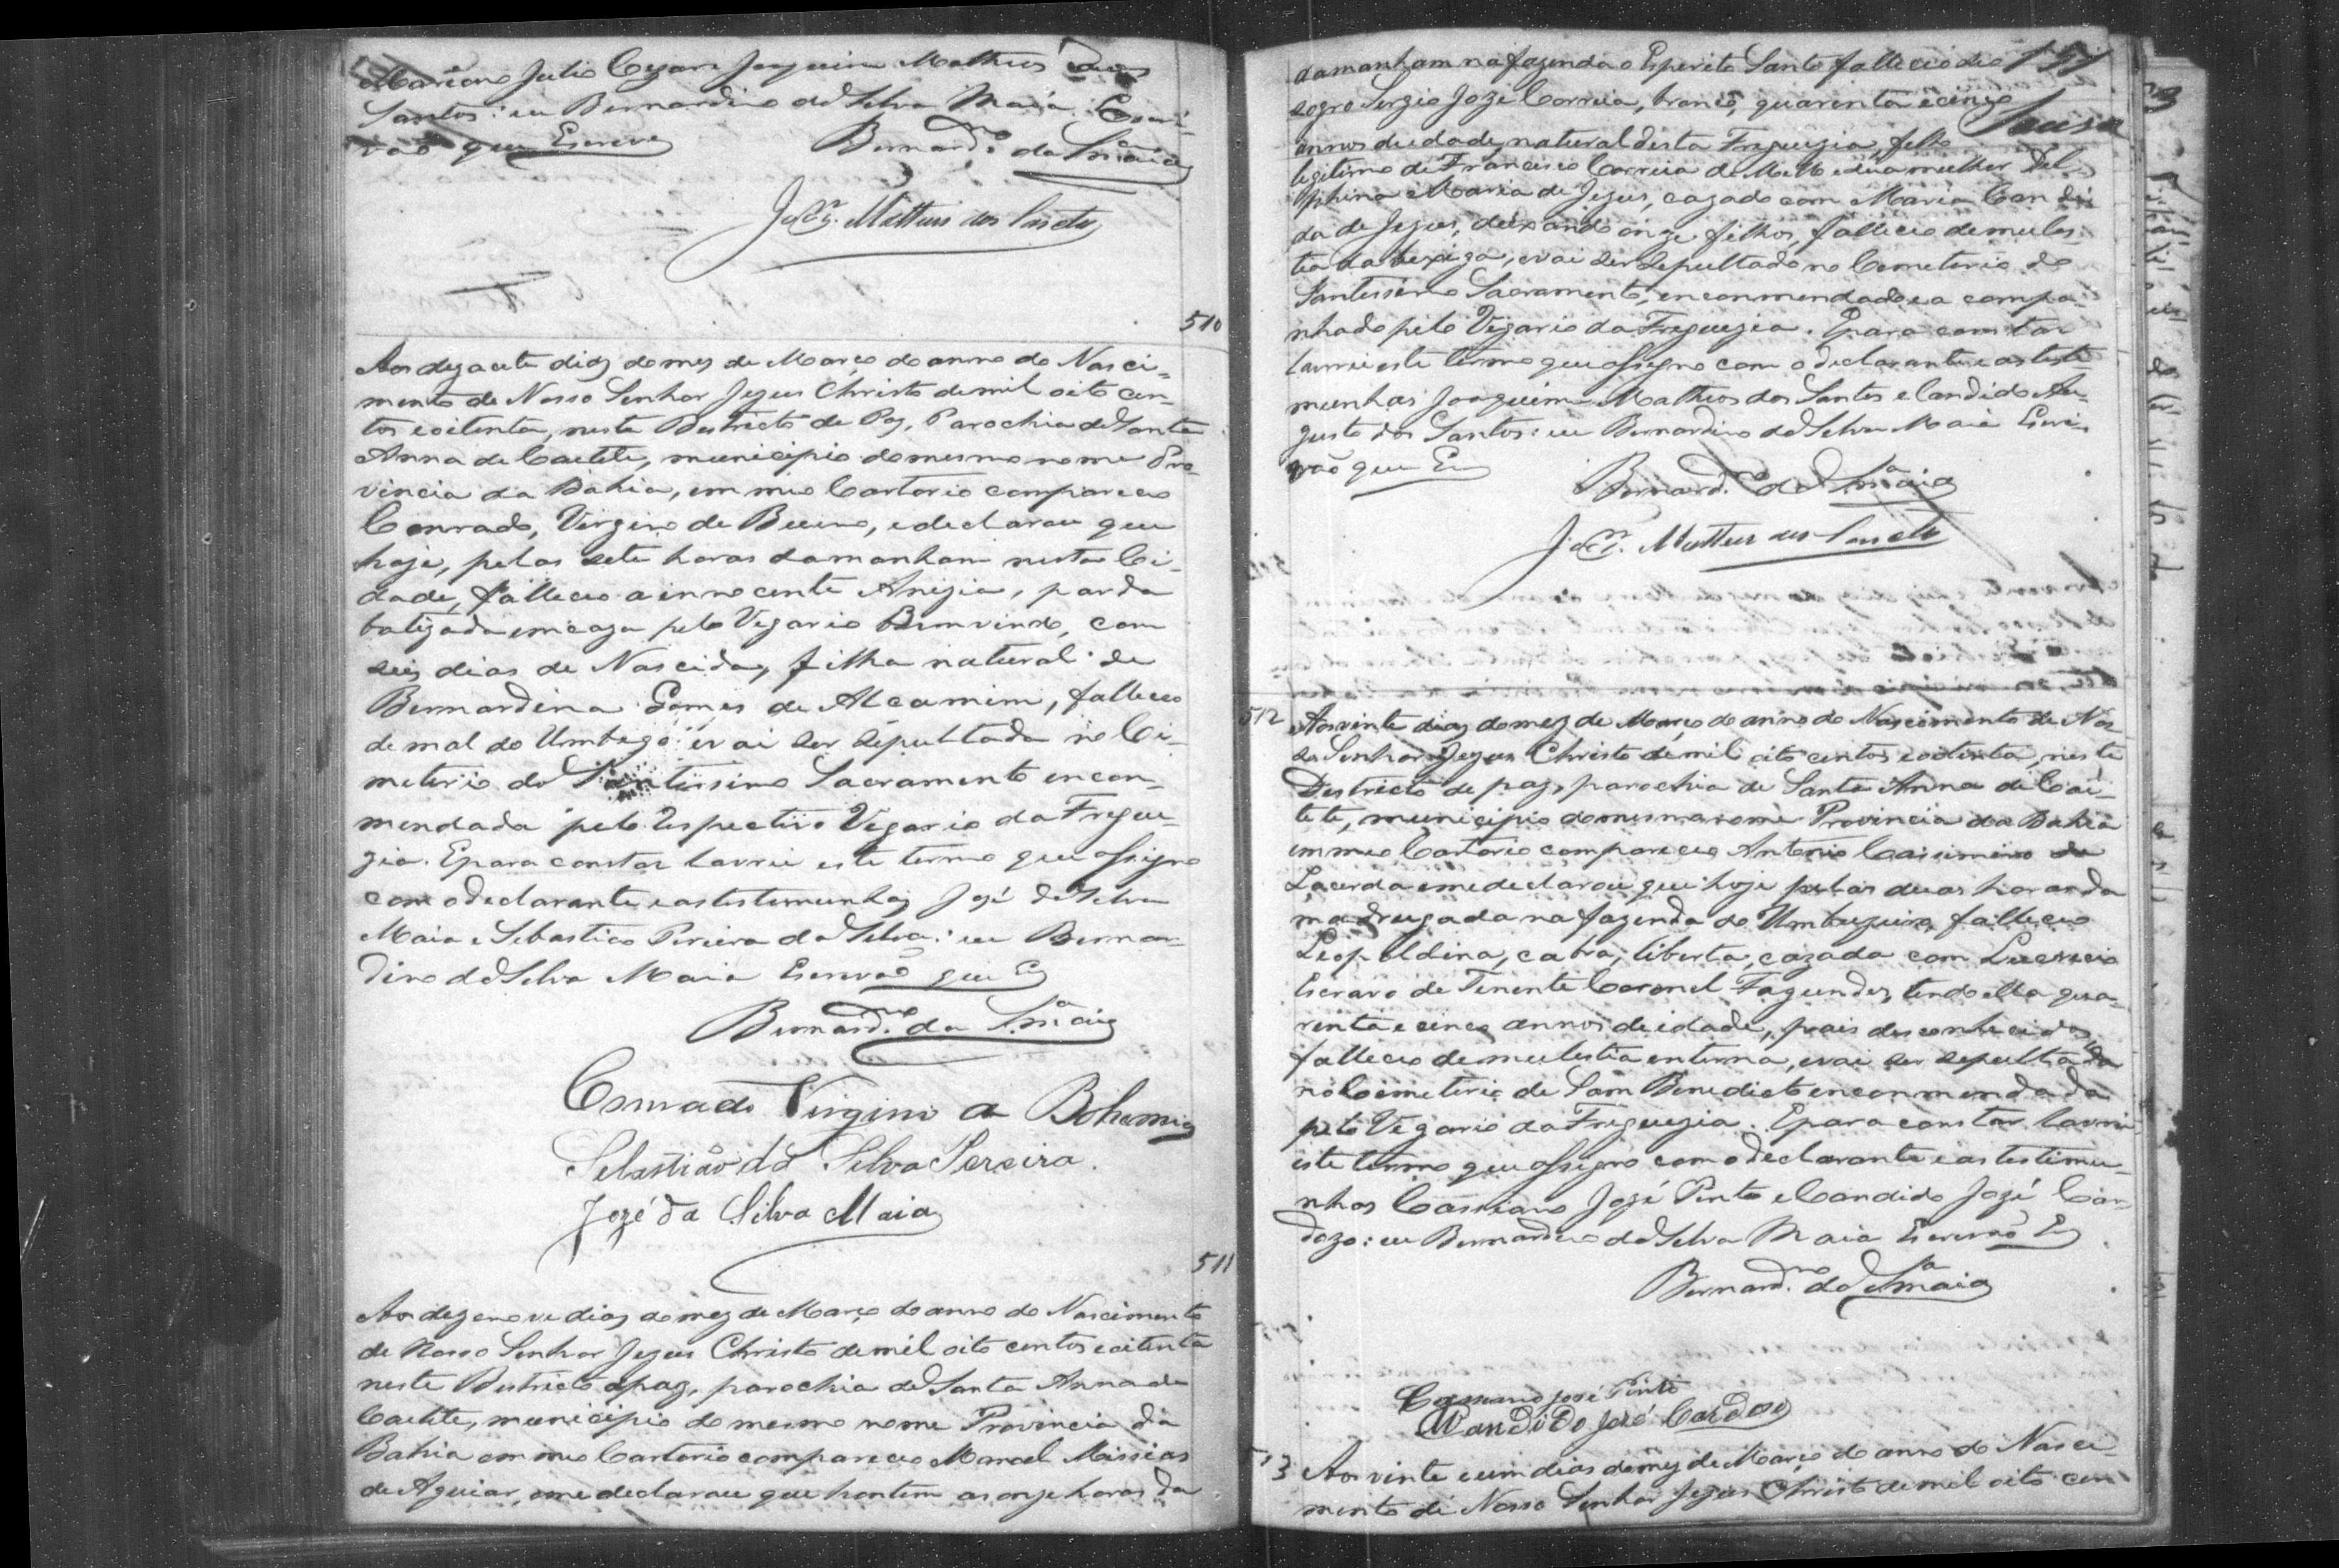 Mariano Julio Cezar Joaquim Matheus dos
Santos: eu Bernardino da Silva Maia Escri-
vão que Escrevi Bernard.no da S.a Maia
J.m Matheus dos Santos
510
Aos dezacete dias do mez de Março do anno do Nasci-
mento de Nosso Senhor Jezus Christo de mil oito cen-
tos e oitenta, neste Destricto de Paz, Parochia de Santa
Anna de Caetité, municipio do mesmo nome Pro-
vincia da Bahia, em meu Cartorio compareceo
Conrado, Virginio de Buemo, e declarou que
hoje, pelas sete horas da manham nesta Ci-
dade, falleceo a innocente Anizia, parda
batizada em caza pelo Vigario Bemvindo, com
seis dias de Nascida, filha natural de
Bernardina Gomes de Alcamim, falleceo
de mal do Umbigo: e vai ser sepultada no Ci-
meterio do Santissimo Sacramento encom-
mendada pelo respectivo Vigario da Fregue-
zia. E para constar lavrei este termo que assigno
com o declarante e as testemunhas José da Silva
Maia e Sebastião Pereira da Silva: eu Bernar-
dino da Silva Maia Escrivão que E
Bernard.no da S.a Maia
Conrado Virginio a Bohemia
Sebastião da Silva Pereira.
Jozé da Silva Maia
511
Aos dezenove dias do mez de Março do anno do Nascimento
de Nosso Senhor Jezus Christo de mil oito centos e oitenta
neste Destricto de paz, parochia de Santa Anna de
Caetité, municipio do mesmo nome Provincia da
Bahia em meu Cartorio compareceo Manoel Missias
de Aguiar, e me declarou que hontem as onze horas da
da manham na fazenda o Espirito Santo falleceo seo
sogro Sergio Jozé Correia, branco, quarenta e cinco
Souza
annos de idade, natural desta Freguezia, filho
legitimo de Francisco Correia de Mello e sua mulher Del-
phina Maria de Jezus, cazado com Maria Candi-
da de Jezus, deixando onze filhos, falleceo de moles-
tia da bexiga, e vai ser sepultado no Cemeterio do
Santissimo Sacramento, encommendado e a compa-
nhado pelo Vigario da Freguezia. E para constar
lavrei este termo que assigno com o declarante e as teste-
munhas Joaquim Matheos dos Santos e Candido Au-
gusto dos Santos: eu Bernardino da Silva Maia Escri-
vão que E
Bernard.no da S.a Maia
J.m Matheus dos Santos
512 Aos vinte dias do mez de Março do anno do Nascimento de Nos-
so Senhor Jezus Christo de mil oito centos e oitenta, neste
Destricto de paz, parochia de Santa Anna de Cai-
teté, municipio do mesmo nome Provincia da Bahia
em meu Cartorio compareceo Antonio Cassimiro de
Lacerda e me declarou que hoje pelas duas horas da
madrugada na fazenda do Umbuzeiro, falleceo
Leopoldina, cabra, liberta, cazada com Lucrecio
Escravo de Tenente Coronel Fagundes, tendo ella qua-
renta e cinco annos de idade, pais desconhecidos
falleceo de mulestia interna, e vai ser sepultada
no Cemeterio de Sam Benedicto encommendada
pelo Vigario da Freguezia. E para constar lavrei
este termo que assigno com o declarante e as testemu-
nhas Cassiano José Pinto e Candido José Car-
dozo: eu Bernardino da Silva Maia Escrivão E
Bernard.no da S.a Maia
Cassiano José Pinto
Candido José Cardozo
513 Aos vinte e um dias do mez de Março do anno do Nasci-
mento de Nosso Senhor Jezus Christo de mil oito cen